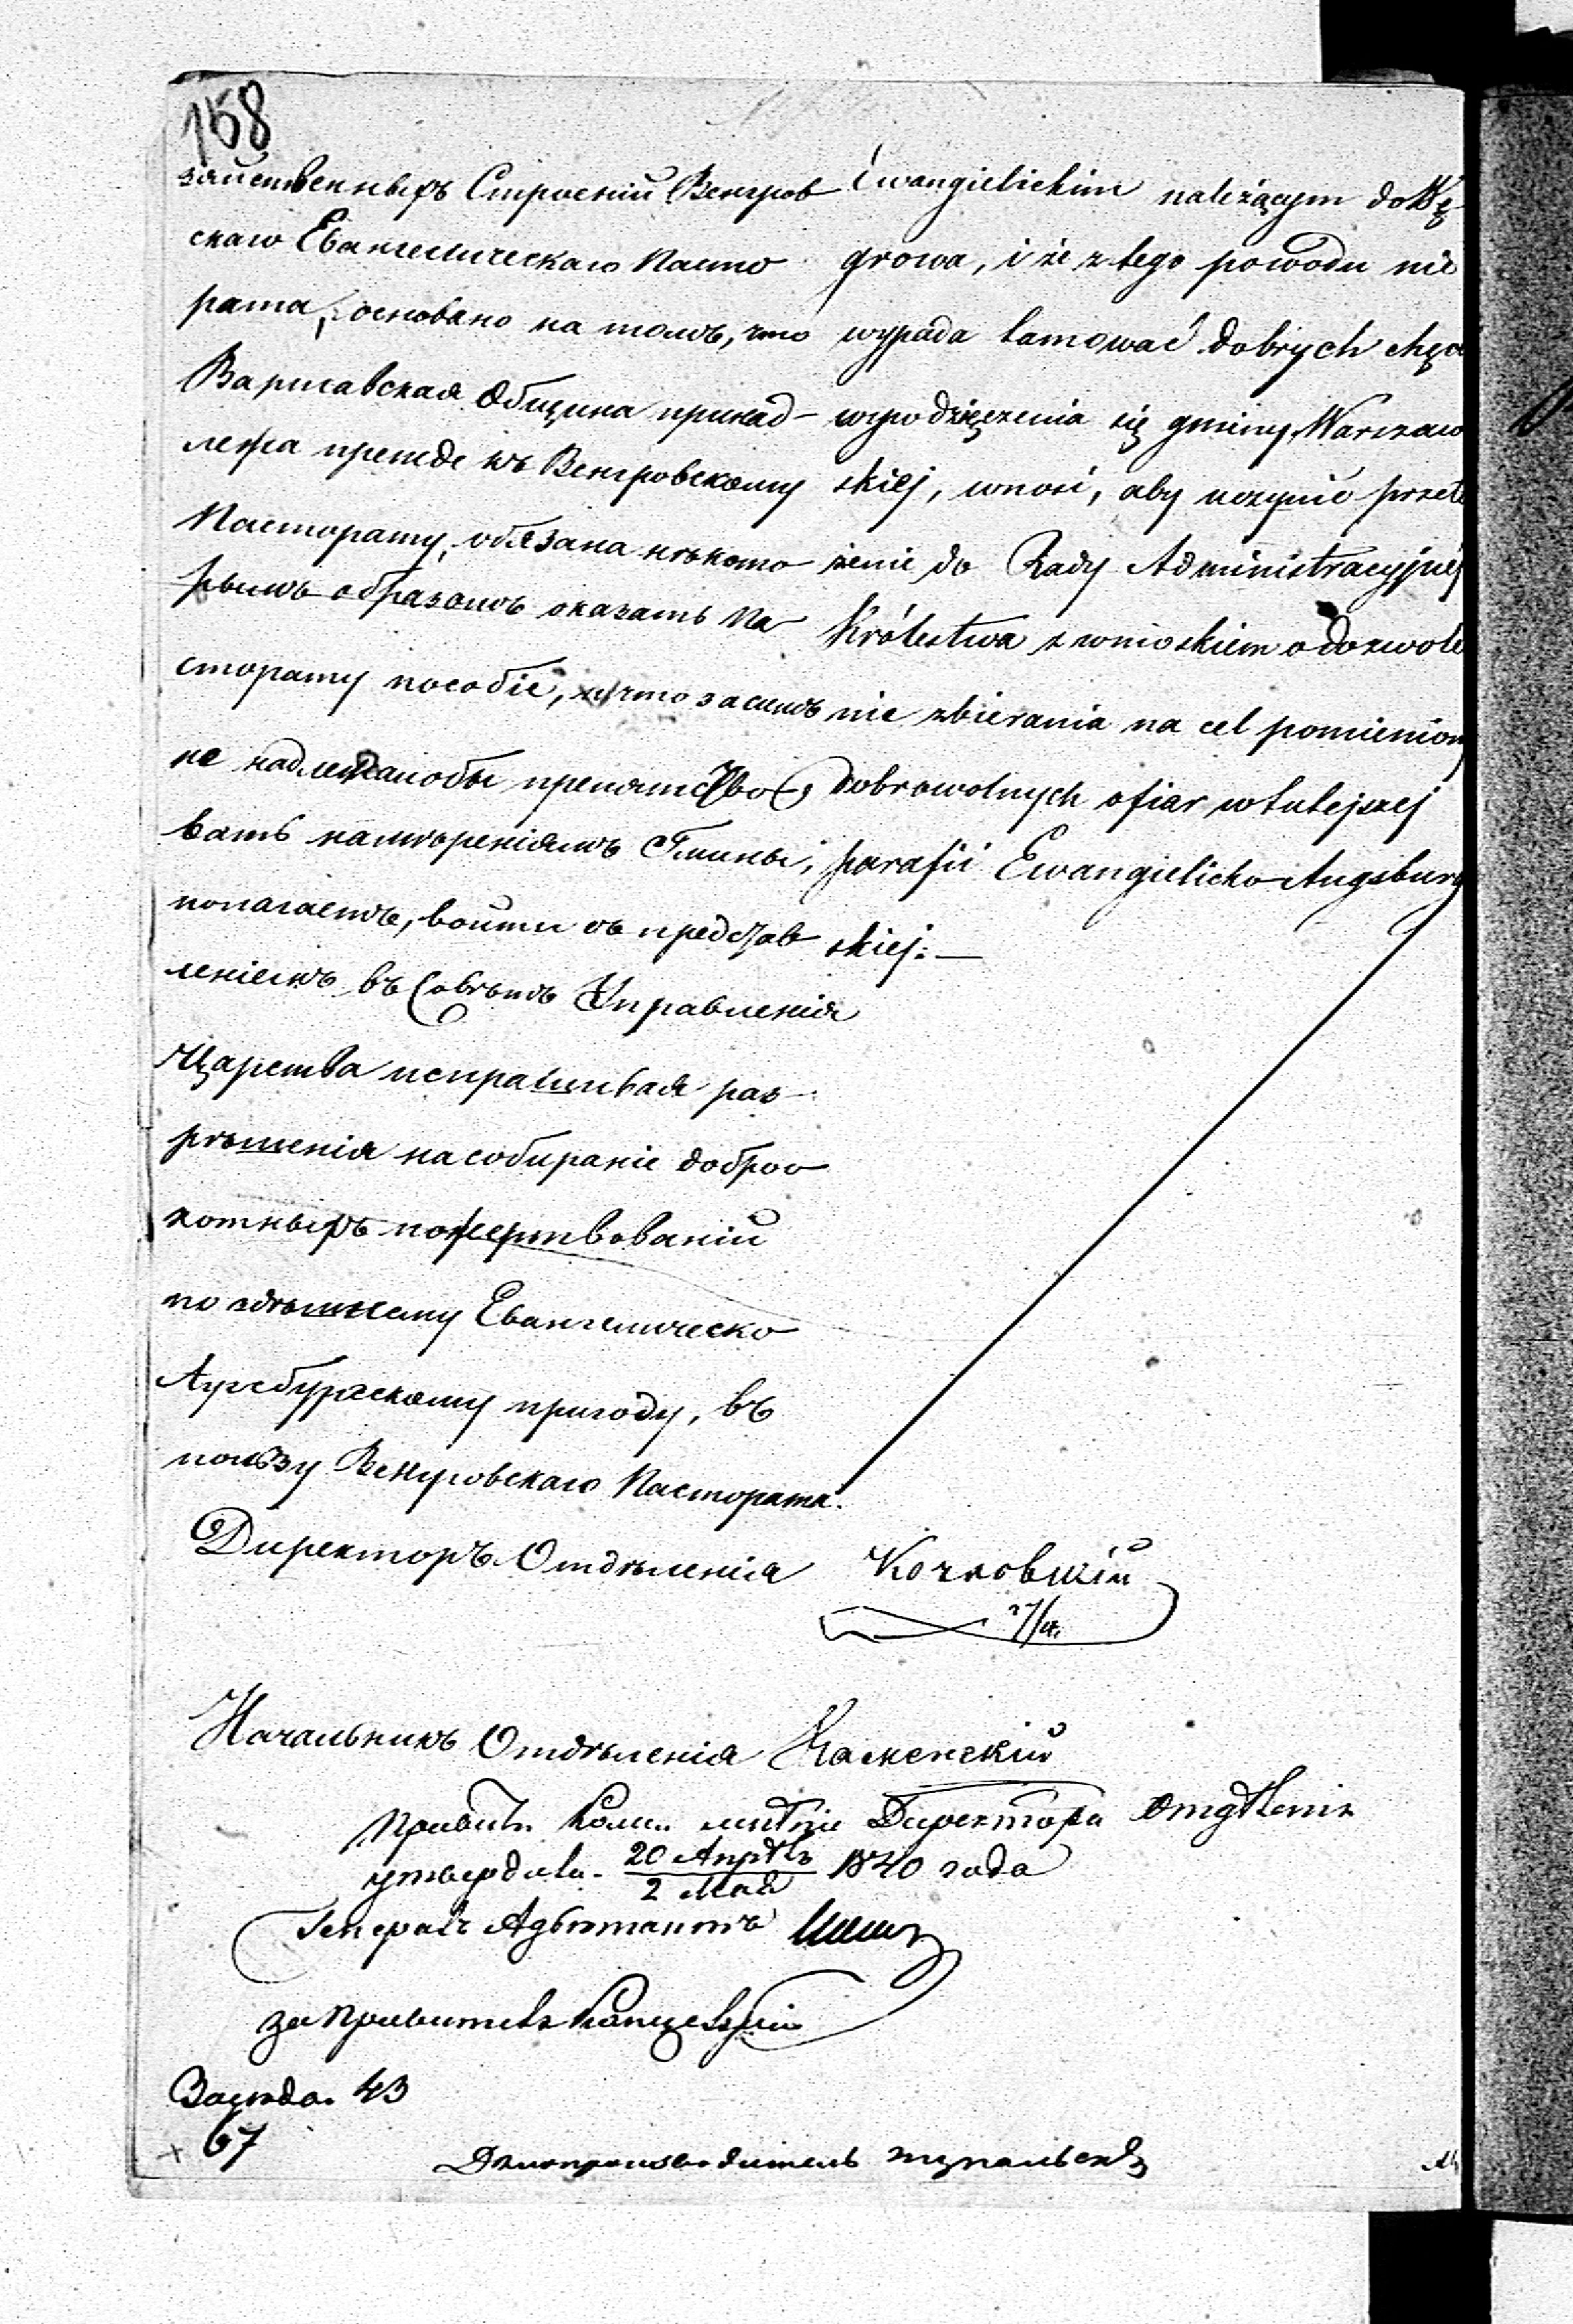 158
зяйственныхъ Строеній Венгров
скаго Евангелическаго Пасто
рата, основано на томъ, что
Варшавская Община принад-
лежа прежде къ Венгровскому
Пасторату, обязана нѣкото
рымъ образомъ оказать Па
сторату пособіе, и что засимъ
не надлежалобы препятство
вать намѣреніямъ Гмины,
полагаетъ, войти съ представ
леніемъ въ Совѣтъ Управленія
Царства испрашивая раз-
рѣшенія на собираніе добро
хотныхъ пожертвованій
по здѣшнему Евангелическо
Аугсбургскому приходу, въ
пользу Венгровскаго Пастората.
Ewangielickim należącym do Wę
growa, i że z tego powodu nie
wypada tamować dobrych chęci
wywdzięczenia się gminy Warszaw
skiej, wnosi, aby uczynić przeło
żenie do Rady Administracyjnej
Królestwa z wnioskiem o dozwole
nie zbierania na cel pomieniony
dobrowolnych ofiar w tutejszej
parafii Ewangielicko Augsburg
skiej.—
Директоръ Отдѣленія Кочковшій
27/4.
Начальникъ Отдѣленія Каменскій
Правит. Ком. мнѣніе Директора Отдѣленія
утвердила. 20 Апрѣль / 2 Мая 1840 года
Генералъ Адъютантъ
за Правителя Канцеляріи
Засѣда. 43
67
Дѣлопроизводитель